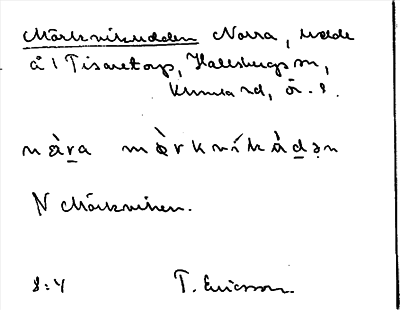 Mörkvikudden Norra, udde
å 1 Tisaretorp, Hallsbergs sn,
Kumla hd, Ör. l.
nòr̲a mö̀rkvíkùd̲ən
N Mörkviken.
8:4 T. Ericsson.